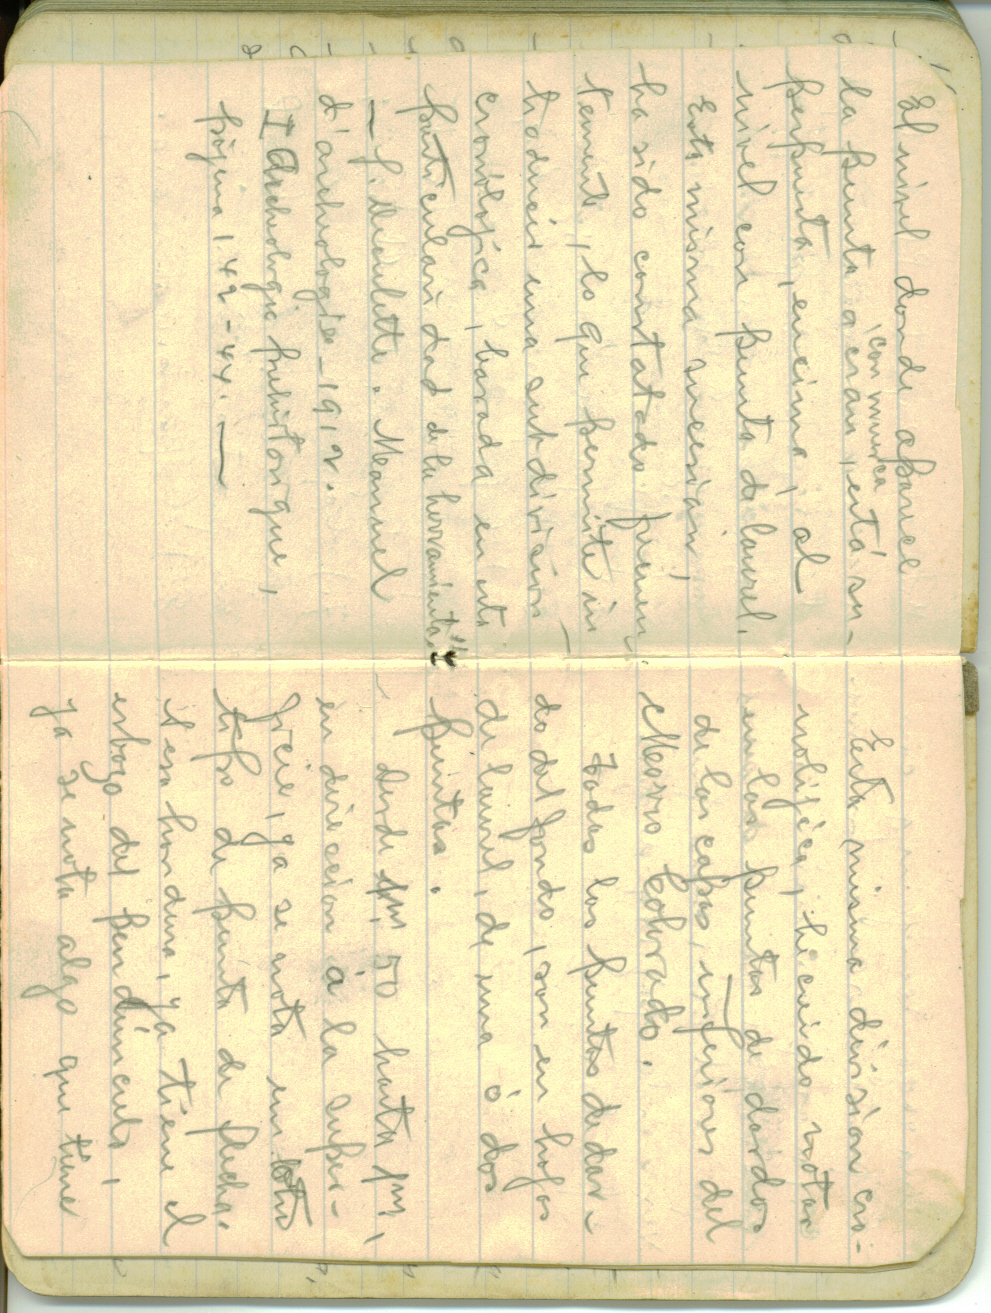 El nivel donde aparece
la punta a cran, está su-
'con muesca
perpuesta, encima, al
nivel con punta de laurel.
Esta misma sucesión,
ha sido constatado frecuen
temente, lo que permite in
troducir una subdivisión
cronólogica, basada en esta
particularidad de la herramienta."
— J. Dechelette. Manuel
d'archeologie - 1912.
I Archeologie prehistorique,
página 142-44. —
Esta misma división cro-
nolójica, hé cuido notar
en las puntas de dardos
de las capas inferiores del
Morro Colorado.
Todas las puntas de dar-
do del fondo, son en hojas
de laurel, de una ó dos
puntas.
Desde 1m, 50 hasta 1m,
en direccion á la super-
ficie, ya se nota un otro
tipo de punta de flecha.
A esa hondura, ya tiene el
esbozo del pendúnculo,
ya se nota algo que tiene